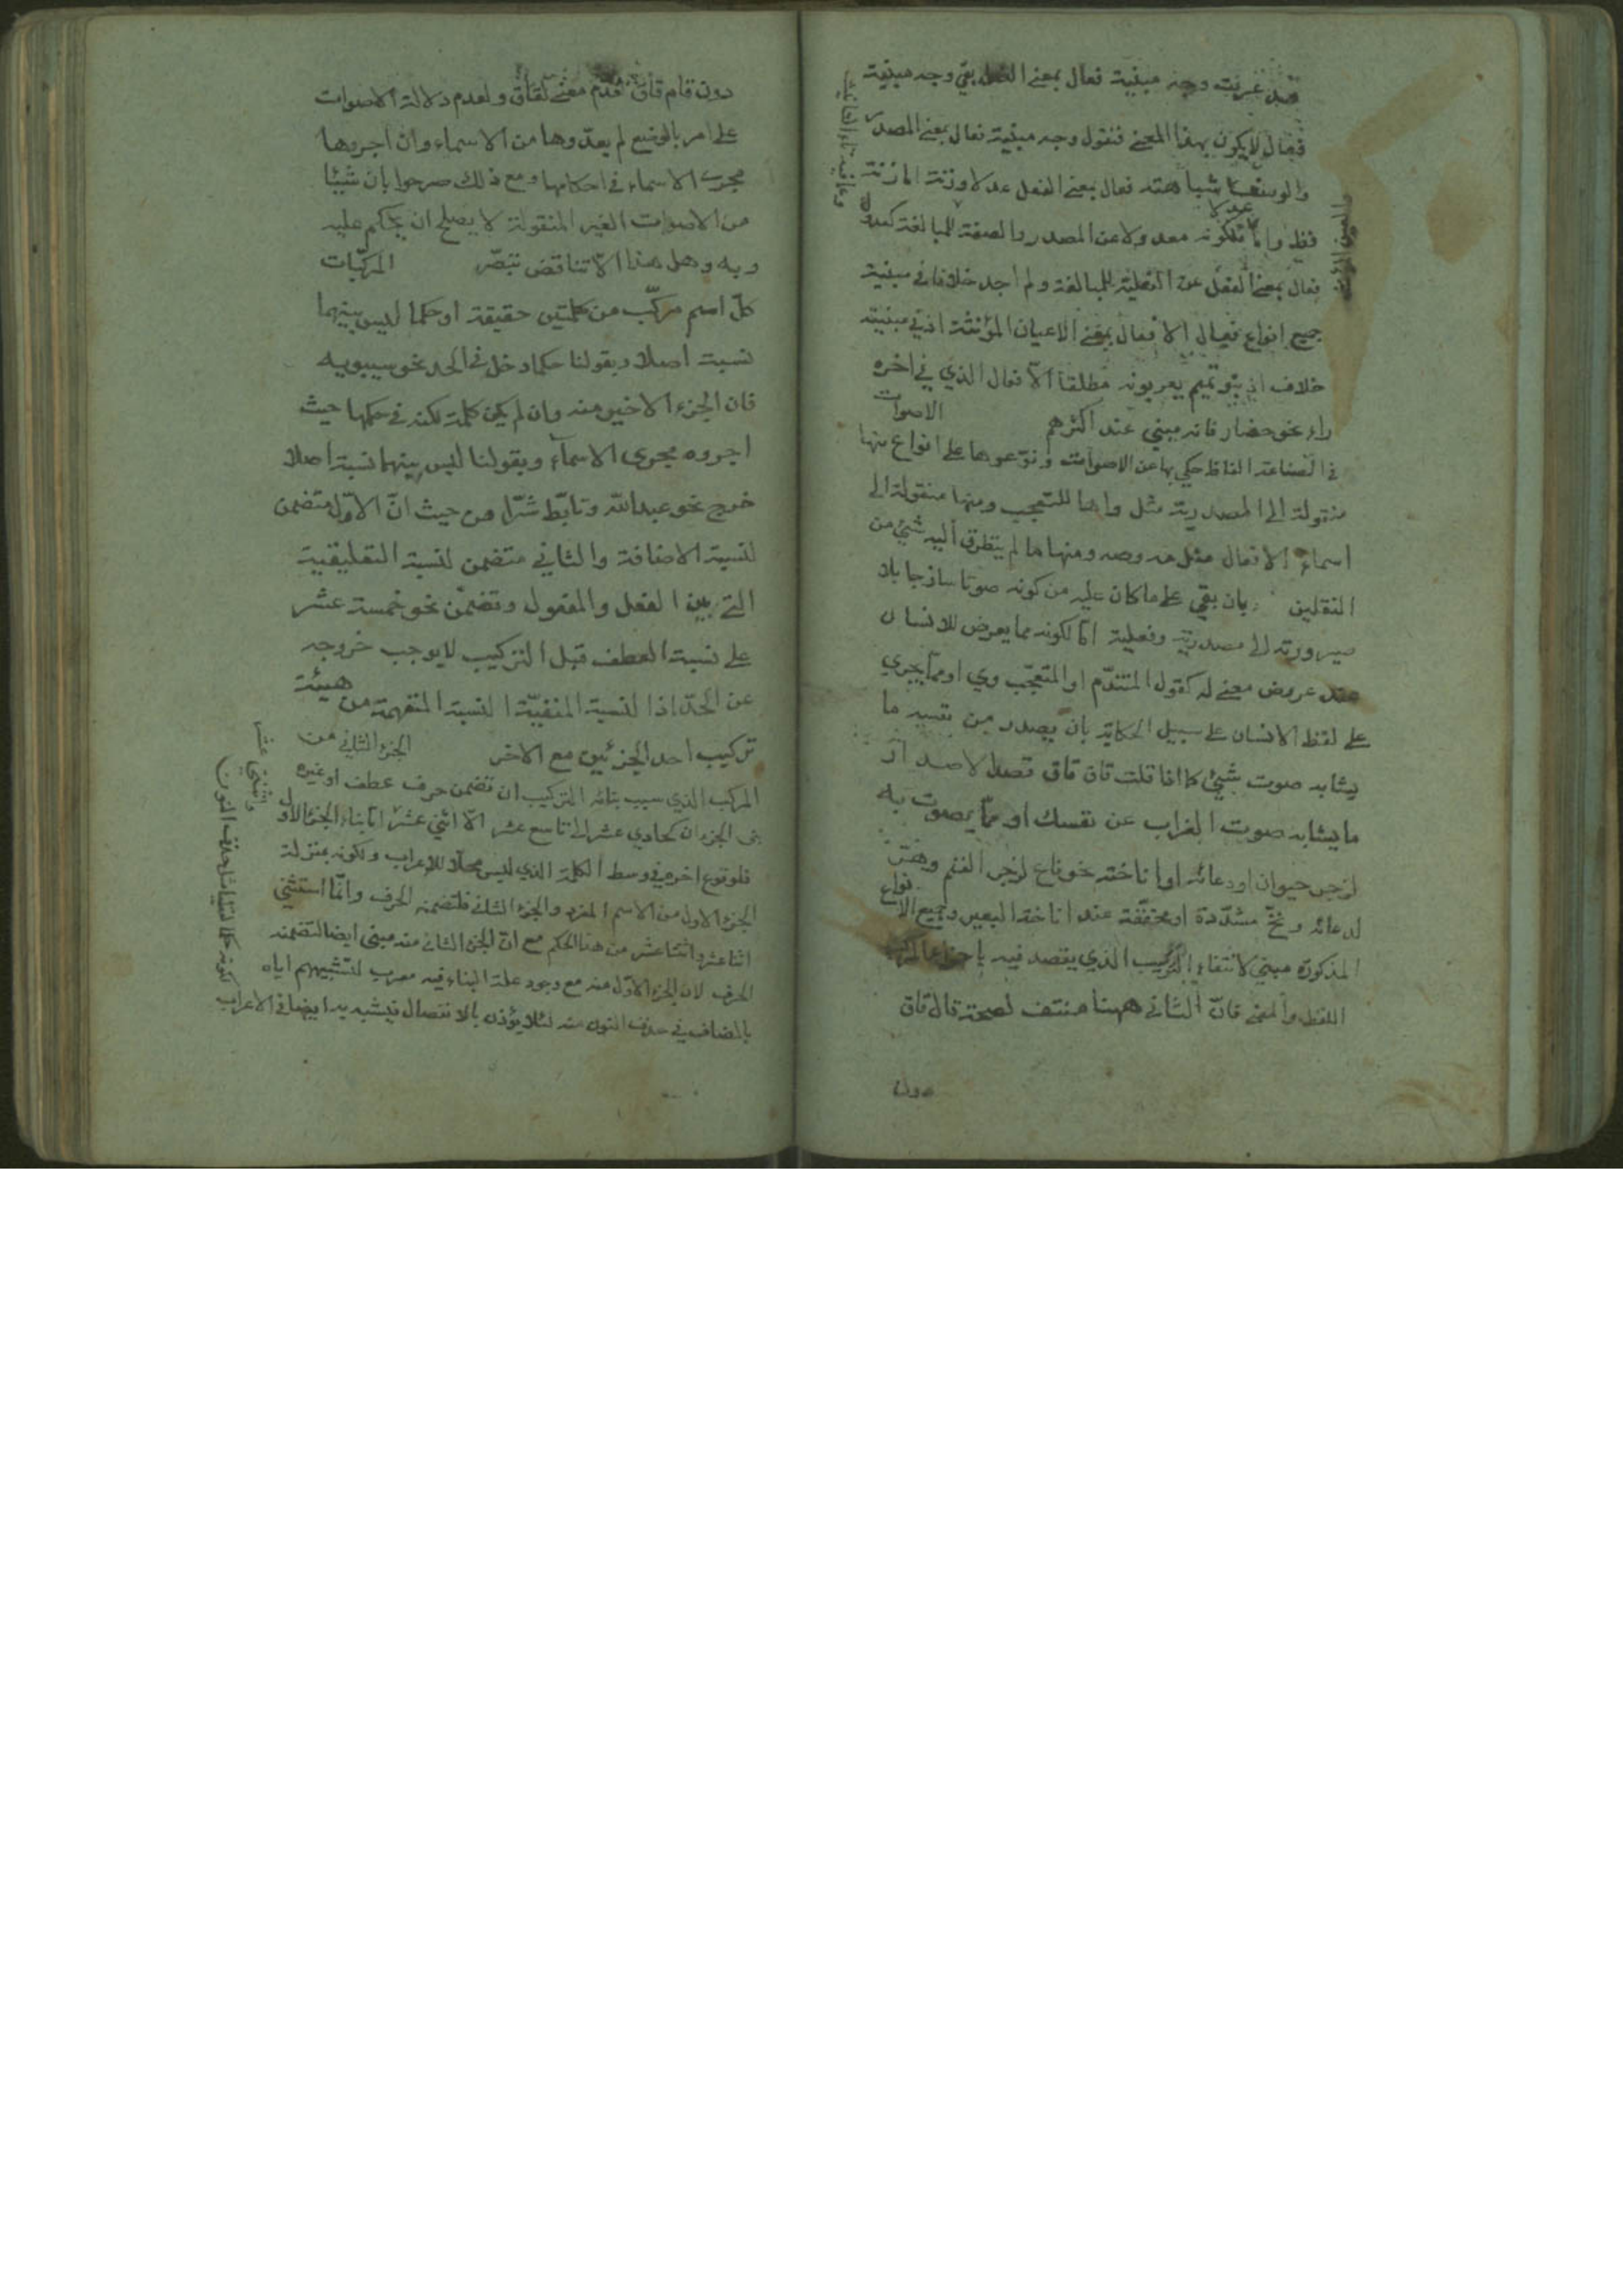 قد عرفت وجه مبنية فعال بمعنى الفعل بقي وجه مبنية
فعال لا يكون بهذا المعنى فنقول وجه مبنية فعال بمعنى المصدر
والوصف شباهته فعال بمعنى الفعل عدلا وزنة اما زنة
عدلا
فظ واما فلكونه معدولا عن المصدر والصفة للمبالغة كعدول
فعال بمعنى الفعل عن الفعلية للمبالغة ولم اجد خلافا في مبنية
جميع انواع فعال الا فعال بمعنى الاعيان المؤنثة اذ في مبنيته
خلاف اذ بنو تميم يعربونه مطلقا الا فعال الذي في اخره
راء نحو حضار فانه مبني عند اكثرهم الاصوات
في الصناعة الفاظ حكي بها عن الاصوات ونوعوها على انواع منها
منقولة الى المصدرية مثل واها للتعجب ومنها منقولة الى
اسماء الافعال مثل مه وصه ومنها ما لم يتطرق اليه شيئ من
النقلين بان بقي على ما كان عليه من كونه صوتا ساذجا بلا
صيرورته الى مصدرية وفعلية اما لكونه مما يعرض للانسان
عند عروض معنى له كقول المتندم او المتعجب وي او مما يجري
على لفظ الانسان على سبيل الحكاية بان يصدر من نفسه ما
يشابه صوت شيئ كما اذا قلت قاق قاق قصدا لاصدار
ما يشابه صوت الغراب عن نفسك او مما يصوت به
لزجر حيوان او دعائه او اناخته نحو ناع لزجر الغنم
لدعائه ونخ مشددة او مخففة عند اناخة البعير وجميع الانواع
المذكورة مبني لانتفاء التركيب الذي يقصد فيه
اللفظ والمعنى فان الثاني ههنا منتف لصحة قال قاق
دون
دون قام قاق فقدم معنى لقاق ولعدم دلالة الاصوات
على امر بالوضع لم يعدوها من الاسماء وان اجروها
مجرى الاسماء في احكامها ومع ذلك صرحوا بان شيئا
من الاصوات الغير المنقولة لا يصلح ان يحكم عليه
وبه وهل هذا الا تناقض تبصر المركبات
كل اسم مركب من كلمتين حقيقة او حكما ليس بينهما
نسبة اصلا وبقولنا حكما دخل في الحد نحو سيبويه
فان الجزء الاخير منه وان لم يكن كلمة لكنه في حكمها حيث
اجروه مجرى الاسماء وبقولنا ليس بينهما نسبة اصلا
خرج نحو عبد الله وتابط شرا من حيث ان الاول متضمن
لنسبة الاضافة والثاني متضمن لنسبة التعليقية
التي بين الفعل والمفعول وتضمن نحو خمسة عشر
على نسبة العطف قبل التركيب لا يوجب خروجه
عن الحد اذ النسبة المنفية النسبة المتفهمة من هيئة
تركيب احد الجزئين مع الاخر الجزء الثاني من
المركب الذي سبب بنائه التركيب ان تضمن حرف عطف او غيره
بنى الجزءان كحادي عشر الى تاسع عشر الا اثني عشر اما بناء الجزء الاول
فلوقوع اخره في وسط الكلمة الذي ليس محلا للاعراب ولكونه بمنزلة
الجزء الاول من الاسم المفرد والجزء الثاني فلتضمنه الحرف وانما استثنى
اثنا عشر واثنتا عشر من هذا الحكم مع ان الجزء الثاني منه مبني ايضا لتضمنه
الحرف لان الجزء الاول منه مع وجود علة البناء فيه معرب لتشبيههم اياه
بالمضاف في حذف النون منه لئلا يؤذن بالانفصال فيشبه به ايضا في الاعراب
واثنتي عشر